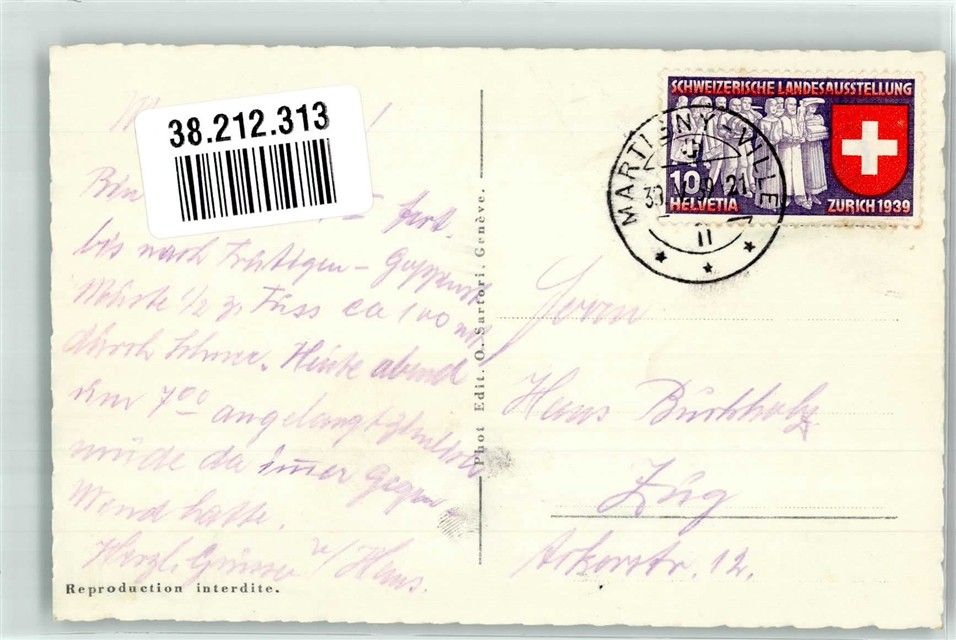 38.212.313
bis nach Frutigen - Goppenst
Musste 1/2 z. Fuss ca 100 m
durch Schnee. Heute abend
um 7⁰⁰ angelangt ziemlich
müde da imer Gegen
Wind hatte.
Herzl. Grüsse v/ Hans.
Reproduction interdite.
Phot Edit. O. Sartori. Genève.
SCHWEIZERISCHE LANDESAUSSTELLUNG
10
HELVETIA
ZURICH 1939
MARTIGNY-VILLE
Herrn
Hans Buchholz
Zug
12.